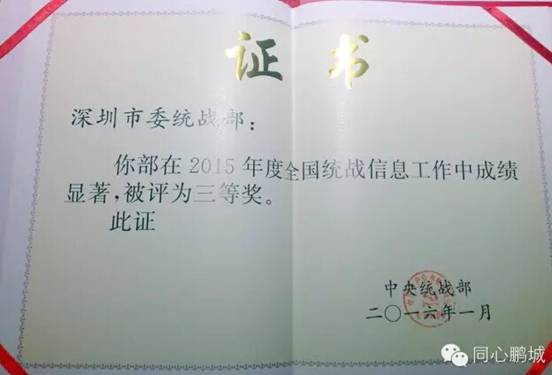 证书
深圳市委统战部：
你部在2015年度全国统战信息工作中成绩
显著，被评为三等奖。
此证
中央统战部
二〇一六年一月
同心鹏城